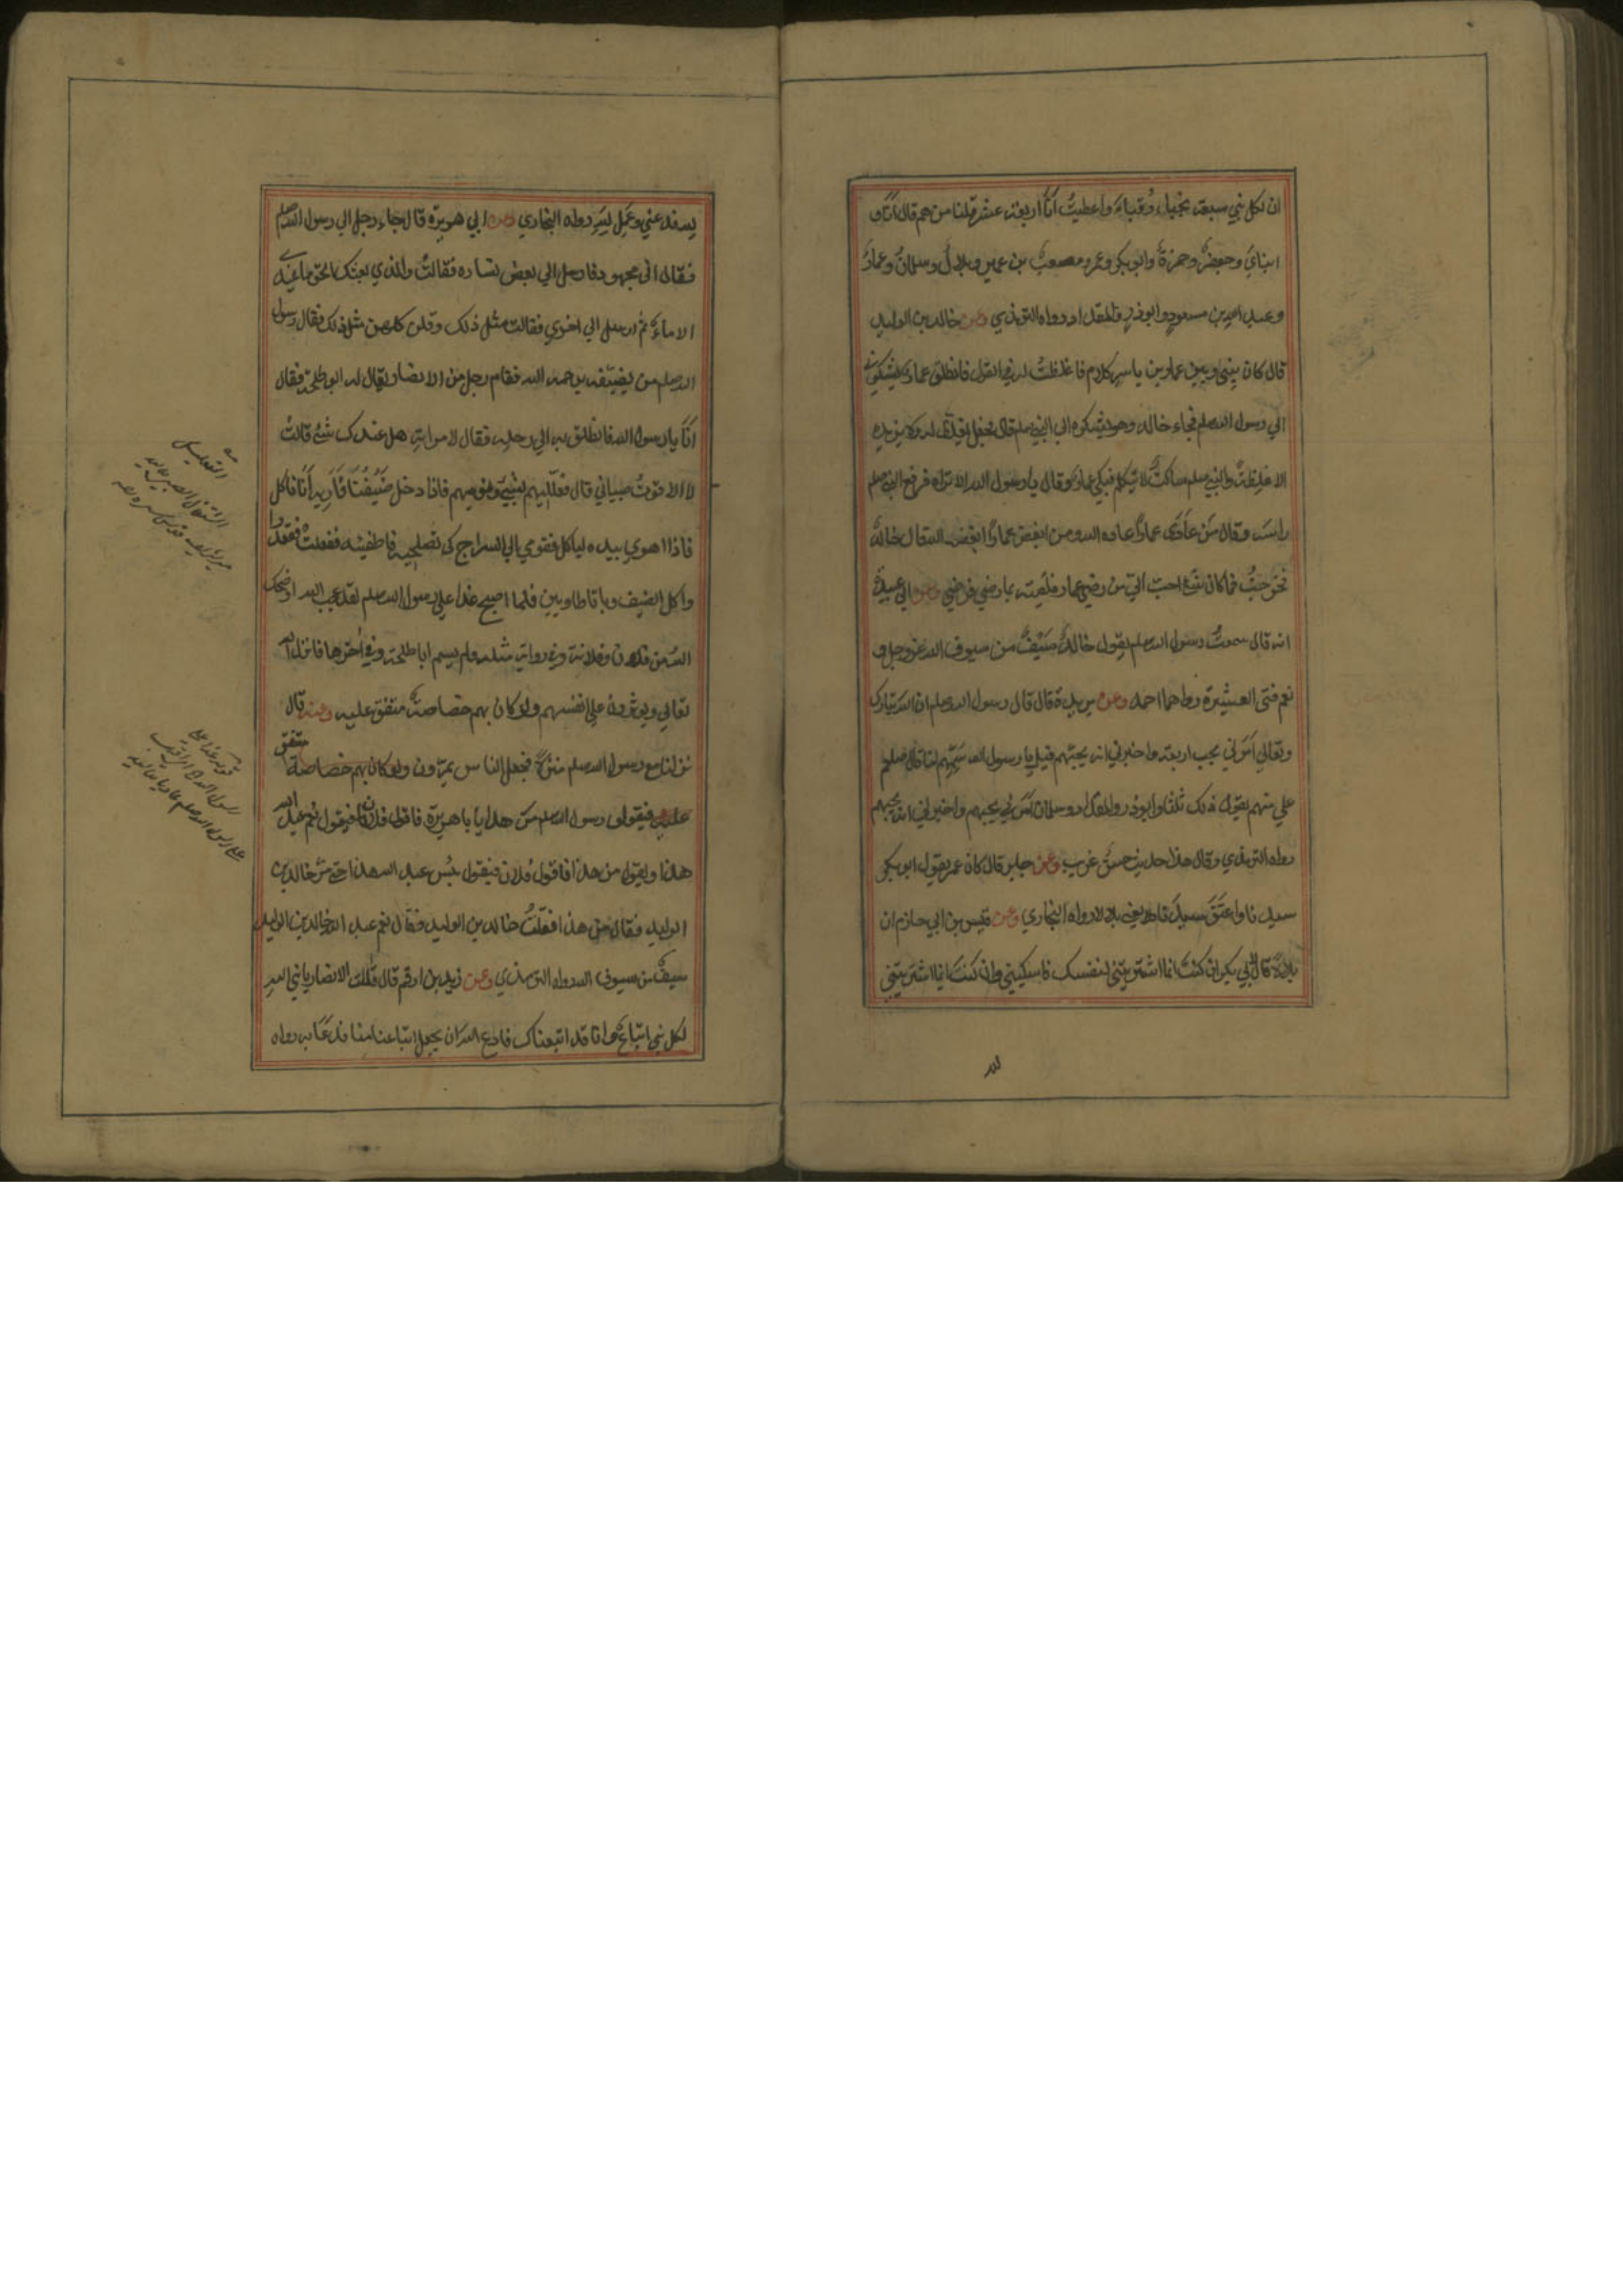 ان لكل نبي سبعة نجباء ورقباء واعطيت انا اربعة عشر قلنا من هم قال انا و
ابناي وجعفر وحمزة وابو بكر وعمر ومصعب بن عمير وبلال وسلمان وعمار
وعبد الله بن مسعود وابو ذر والمقداد رواه الترمذي وعن خالد بن الوليد
قال كان بيني وبين عمار بن ياسر كلام فاغلظت له في القول فانطلق عمار يشكوني
الي رسول الله صلم فجاء خالد وهو يشكوه الي النبي صلم قال فجعل يغلظ له ولا يزيده
الا غلظة والنبي صلم ساكت لا يتكلم فبكي عمار وقال يا رسول الله الا تراه فرفع النبي صلم
راسه وقال من عادى عمارا عاداه الله ومن ابغض عمارا ابغضه الله قال خالد
فخرجت فما كان شئ احب الي من رضي عمار فلقيته بما رضي فرضي وعن ابي عبيدة
انه قال سمعت رسول الله صلم يقول خالد سيف من سيوف الله عز وجل و
نعم فتى العشيرة رواهما احمد وعن بريدة قال قال رسول الله صلم ان الله تبارك
وتعالي امرني بحب اربعة واخبرني انه يحبهم قيل يا رسول الله سمهم لنا قال
علي منهم يقول ذلك ثلثا وابو ذر والمقداد وسلمان امرني بحبهم واخبرني انه يحبهم
رواه الترمذي وقال هذا حديث حسن غريب وعن جابر قال كان عمر يقول ابو بكر
سيدنا واعتق سيدنا يعني بلالا رواه البخاري وعن قيس بن ابي حازم ان
بلالا قال لابي بكر ان كنت انما اشتريتني لنفسك فامسكني وان كنت انما اشتريتني
لله
لله فدعني وعمل لله رواه البخاري وعن ابي هريرة قال جاء رجل الي رسول الله صلم
فقال اني مجهود فارسل الي بعض نسائه فقالت والذي بعثك بالحق ما عندي
الا ماء ثم ارسل الي اخري فقالت مثل ذلك وقلن كلهن مثل ذلك فقال رسول
الله صلم من يضيفه يرحمه الله فقام رجل من الانصار يقال له ابو طلحة فقال
انا يا رسول الله فانطلق به الي رحله فقال لامراته هل عندك شئ قالت
لا الا قوت صبياني قال فعلليهم بشئ ونوميهم فاذا دخل ضيفنا فاريه انا ناكل
فاذا اهوي بيده لياكل فقومي الي السراج كي تصلحيه فاطفئيه ففعلت فقعدوا
واكل الضيف وباتا طاويين فلما اصبح غدا علي رسول الله صلم لقد عجب الله او ضحك
الله من فلان وفلانة وفي رواية مثله ولم يسم ابا طلحة وفي اخرها فانزل الله
تعالي ويوثرون علي انفسهم ولو كان بهم خصاصة متفق عليه وعنه قال
نزلنا مع رسول الله صلم منزلا فجعل الناس يمرون ولو كان بهم خصاصة متفق
عليه فيقول رسول الله صلم من هذا يا ابا هريرة فاقول فلان فيقول نعم عبد الله
هذا ويقول من هذا فاقول فلان فيقول بئس عبد الله هذا حتى مر خالد بن
الوليد فقال من هذا فقلت خالد بن الوليد فقال نعم عبد الله خالد بن الوليد
سيف من سيوف الله رواه الترمذي وعن زيد بن ارقم قال قالت الانصار يا نبي الله
لكل نبي اتباع وانا قد اتبعناك فادع الله ان يجعل اتباعنا منا فدعا به رواه